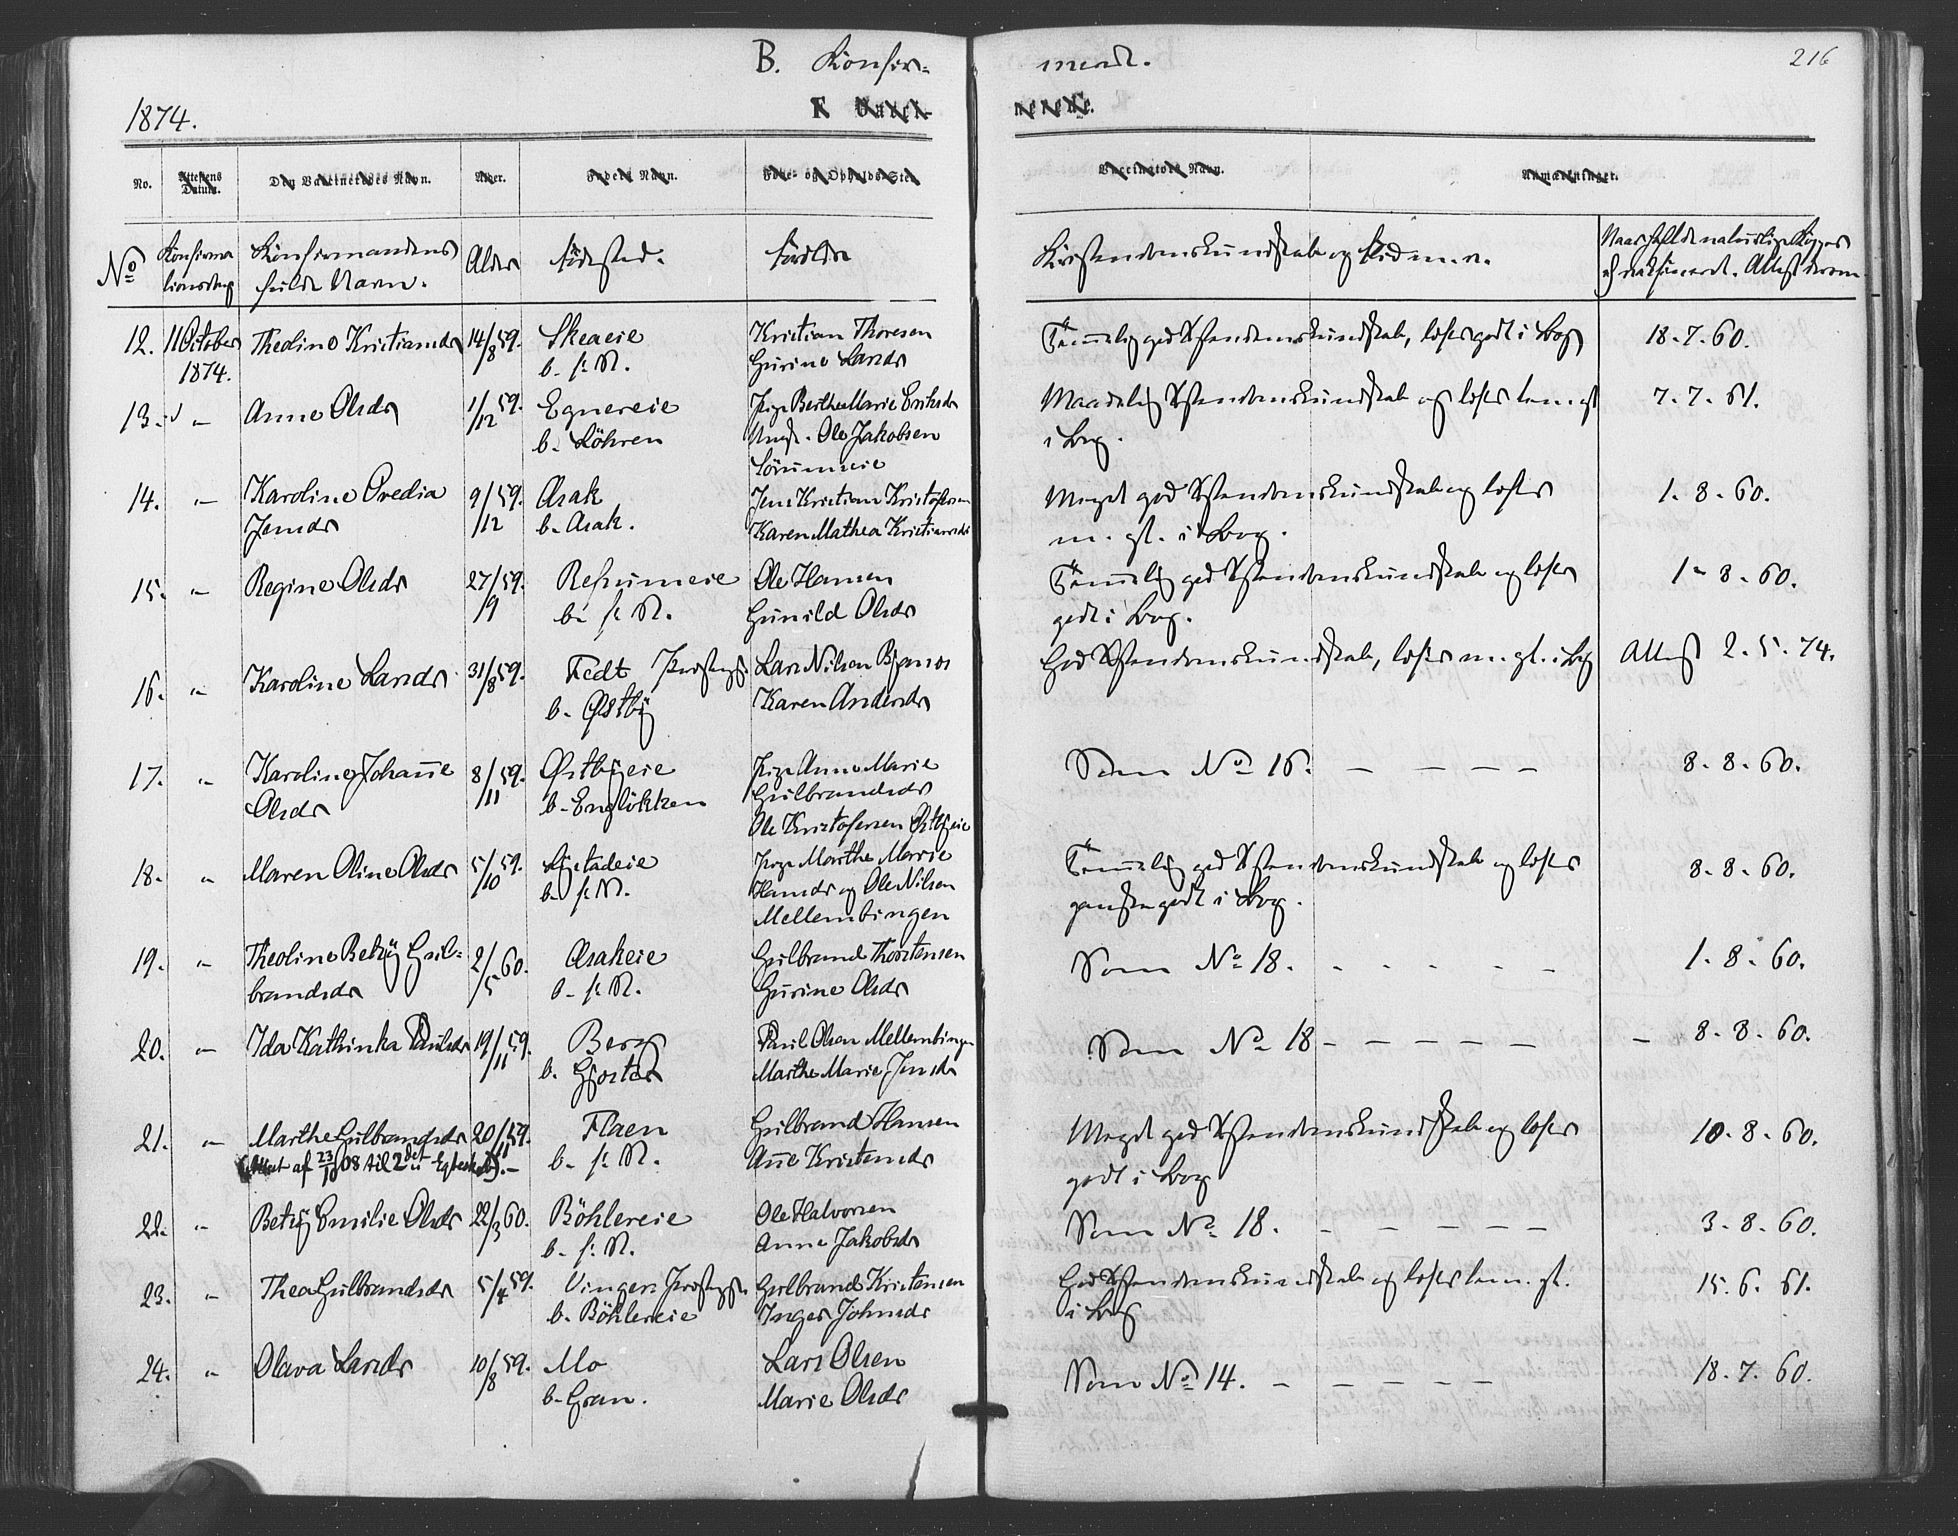 B. Konfir= merede.
216
1874.
No. Attestens Datum. Den Vaccineredes Navn. Alder. Faders Navn. Føde- og Opholds-Sted. Vaccinators Navn. Anmærkninger.
No Konfirma Konfirmandens Alder Födested. Forældre Kristendomskundskab og Flid m. v. Naar havt de naturlige Kopper
tionsdag fulde Navn. el. vaksineret. Attest derom.
12. 11 October Theoline Kristiansdr 14/8 59. Skeaeie Kristian Thoresen Temmelig god Kristendomskundskab, læser godt i Bog 18.7.60.
1874. b. s. St. Gurine Larsdr
13. " Anne Olsdr 1/12 59. Egnereie Pige Berthe Marie Eriksdr Maadelig Kristendomskundskab og læser tem. gt 7.7.61.
b. Löhren Ungk. Ole Jakobsen i Bog.
Sörumeie
14. " Karoline Ovedia 9/12 59. Asak Jens Kristian Kristofersen Meget god Kristendomskundskab og læser 1.8.60.
Jensdr b. Asak. Karen Mathea Kristiansdr m. gt. i Bog.
15. " Regine Olsdr 27/9 59. Refsumeie Ole Hansen Temmelig god Kristendomskundskab og læser 1-8.60.
b. s. St. Gunild Olsdr godt i Bog.
16. " Karoline Larsdr 31/8 59. Fedt Præstegj. Lars Nilsen God Kristendomskundskab, læser m. gt. i Bog Attest 2.5.74.
b. Østby Karen Andersdr
17. " Karoline Johanne 8/11 59. Østbyeie Pige Anne Marie Som No 16. — — — — 8.8.60.
Olsdr b. Englökken Gulbrandsdr
Ole Kristofersen Østbyeie
18. " Maren Oline Olsdr 5/10 59. Pige Marthe Marie Temmelig god Kristendomskundskab og læser 8.8.60.
b. s. St. Hansdr og Ole Nilsen ganske godt i Bog.
Mellembingen
19. " Theoline Betzy Gul= 2/5 60. Asakeie Gulbrand Thorstensen Som No 18. - - - - - 1.8.60.
brandsdr b. s. St. Gurine Olsdr
20. " Ida Kathinka Paulsdr 19/11 59. Berg Paul Olsen Mellembingen Som No 18 — — — — — 8.8.60.
b. Gjoster Marthe Marie Jensdr
21. " Marthe Gulbrandsdr 20/11 59. Flaen Gulbrand Hansen Meget god Kristendomskundskab og læser 10.8.60.
(Attest af 23/10 08 til 2det Egteskab). b. s. St. Anne Kristensdr godt i Bog
22. " Betzy Emilie Olsdr 22/3 60. Böhlereie Ole Halvorsen Som No 18. — — — — — 3.8.60.
b. s. St. Anne Jakobsdr
23. " Thea Gulbrandsdr 5/4 59. Vinger Præstegj. Gulbrand Kristensen God Kristendomskundskab og læser tem. gt. 15.6.61.
b. Böhlereie Inger Johnsdr i Bog
24. " Olava Larsdr 10/8 59. Mo Lars Olsen Som No 14. — — — — — 18.7.60.
b. Gran. Marie Olsdr